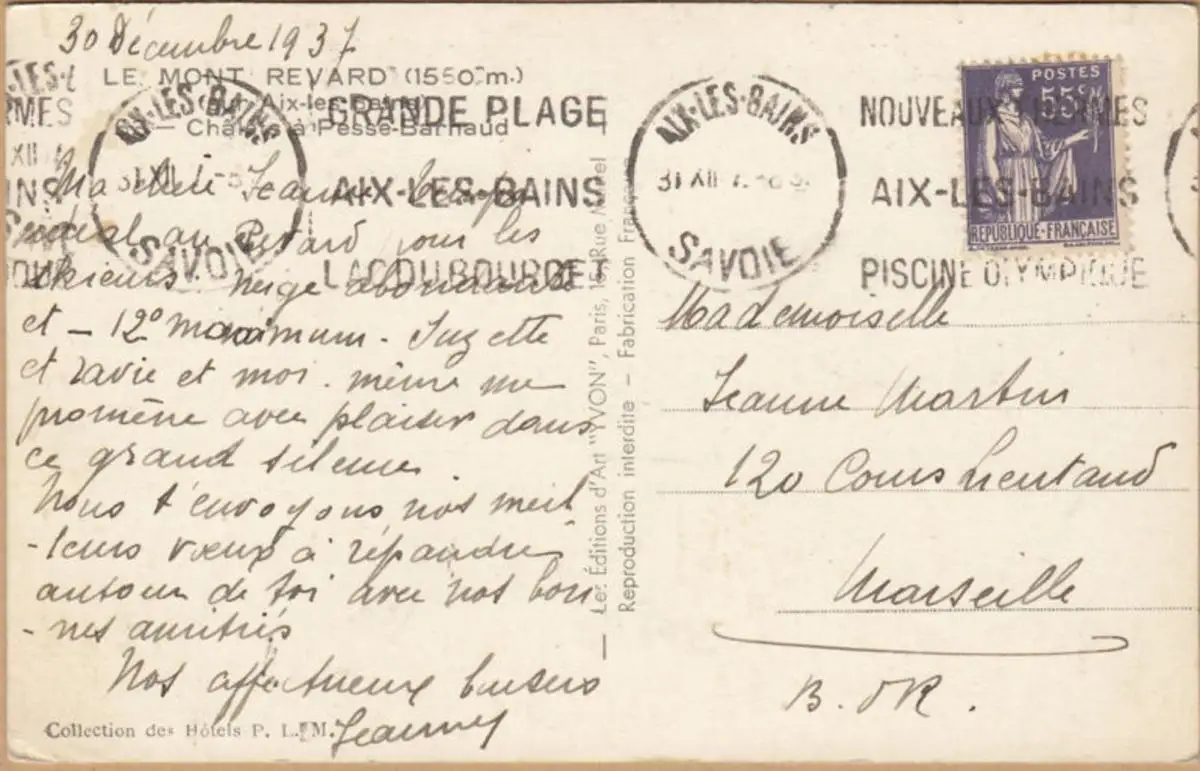 30 Décembre 1937
LE MONT REVARD (1550 m.)
(sur Aix-les-Bains)
— Chalet à Pesse-Barnaud
Ma chère Jeanne temps
idéal au Revard pour les
skieurs neige abondante
et - 12° maximum. Suzette
et ravie et moi-même me
promène avec plaisir dans
ce grand silence.
Nous t'envoyons nos meil
-leurs vœux à répandre
autour de toi avec nos bon
-nes amitiés
Nos affectueux baisers
Jeanny
Collection des Hôtels P. L. M.
AIX-LES-BAINS
SAVOIE
GRANDE PLAGE
AIX-LES-BAINS
LAC DU BOURGET
— Les Éditions d'Art "YVON", Paris, Rue
Reproduction interdite — Fabrication Française
AIX-LES-BAINS
31 XII
SAVOIE
NOUVEAUX THERMES
AIX-LES-BAINS
PISCINE OLYMPIQUE
POSTES
55c
REPUBLIQUE-FRANÇAISE
Mademoiselle
Jeanne Martin
120 Cours Lieutaud
Marseille
B. d R.